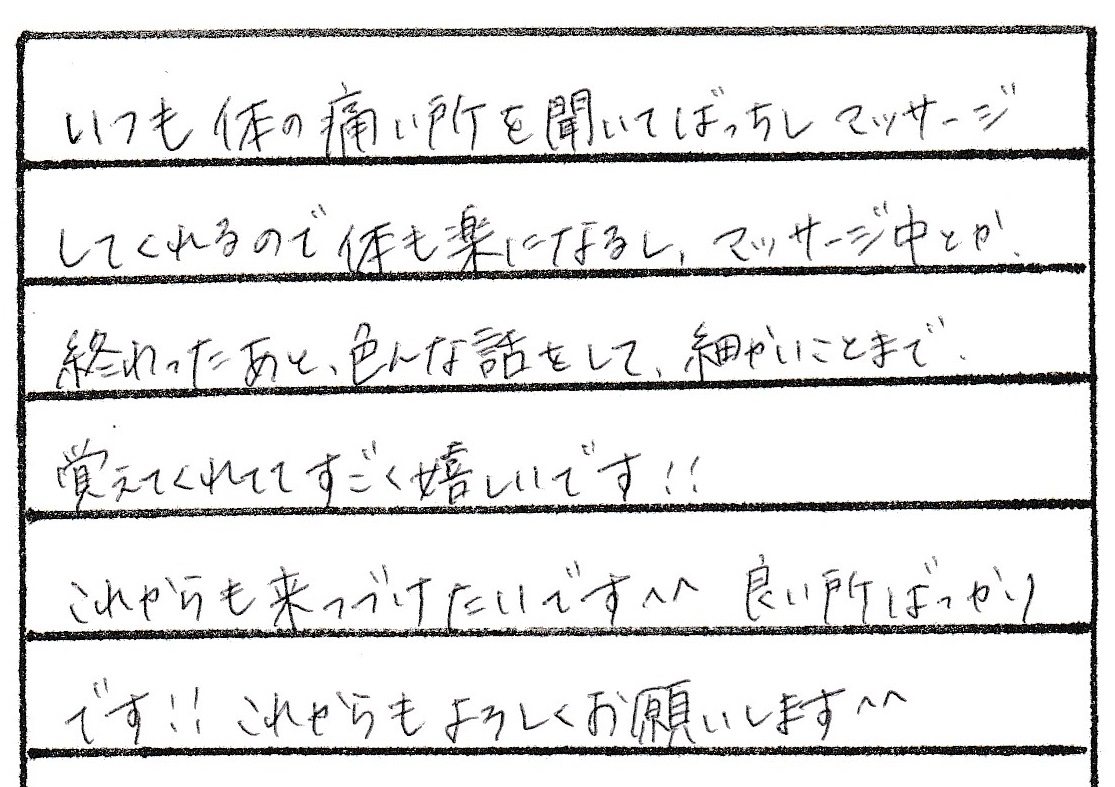 いつも体の痛い所を聞いてばっちしマッサージ
してくれるので体も楽になるし、マッサージ中とか、
終わったあと、色んな話をして、細かいことまで
覚えてくれててすごく嬉しいです!!
これからも来つづけたいです^^ 良い所ばっかり
です!! これからもよろしくお願いします^^